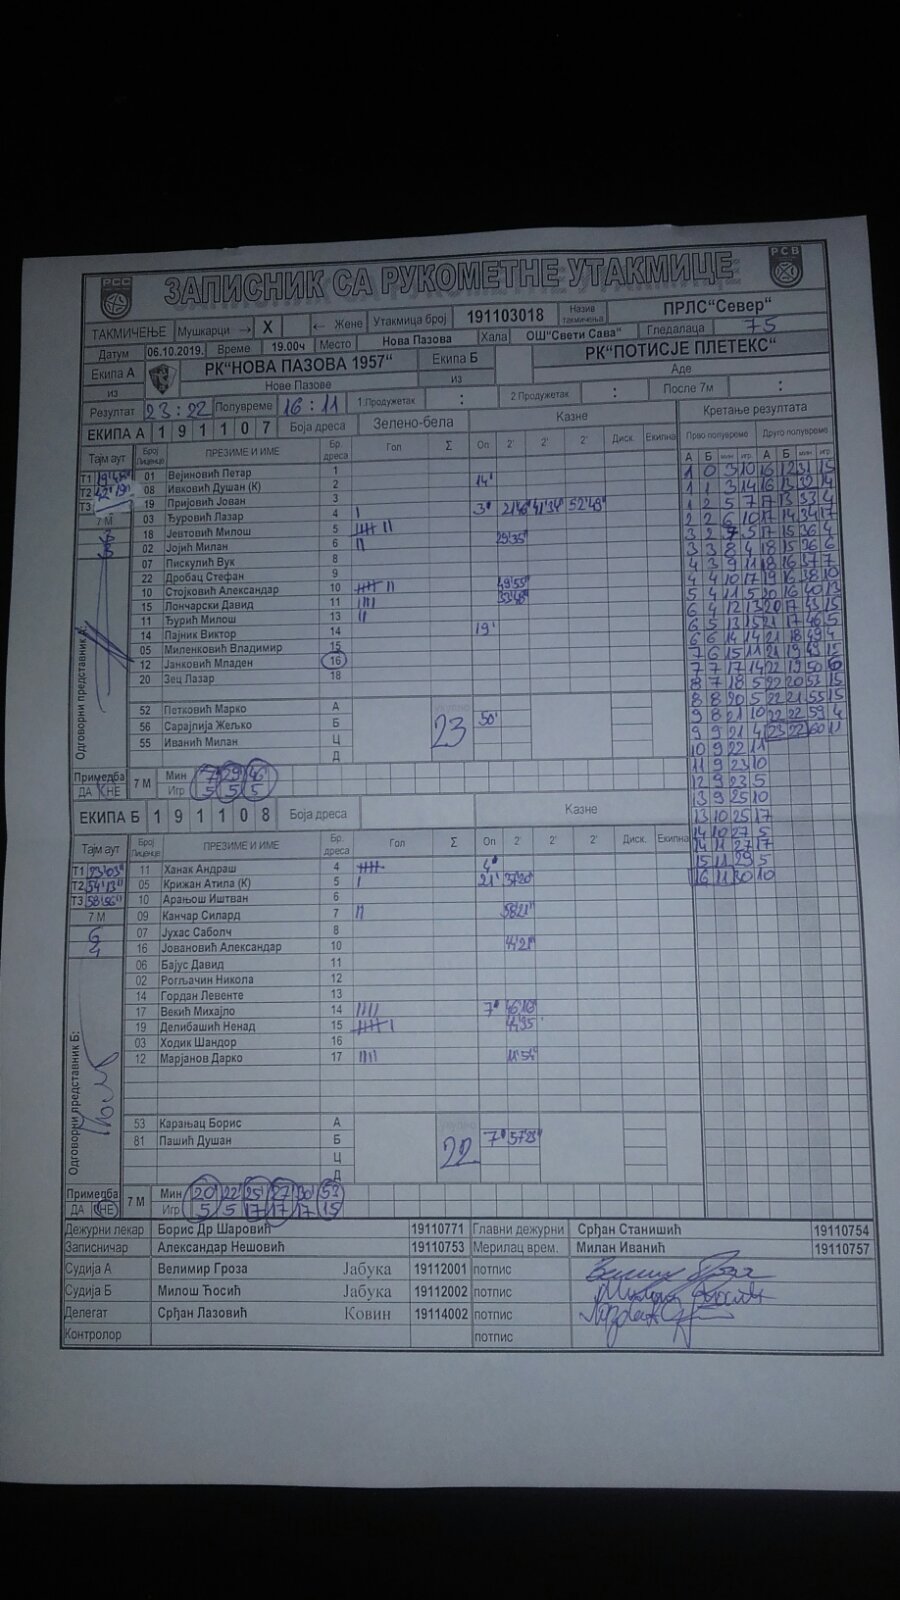 РСС
ЗАПИСНИК СА РУКОМЕТНЕ УТАКМИЦЕ
РСВ
ТАКМИЧЕЊЕ Мушкарци → X ← Жене Утакмица број 191103018 Назив такмичења ПРЛС"Север"
Датум 06.10.2019. Време 19.00ч Место Нова Пазова Хала ОШ"Свети Сава" Гледалаца 75
Екипа А РК"НОВА ПАЗОВА 1957" Екипа Б РК"ПОТИСЈЕ ПЛЕТЕКС"
из Нове Пазове из Аде
Резултат 23:22 Полувреме 16:11 1.Продужетак : 2.Продужетак : После 7м :
ЕКИПА А 191107 Боја дреса Зелено-бела Казне Кретање резултата
Тајм аут Број Лиценце ПРЕЗИМЕ И ИМЕ Бр. дреса Гол Σ Оп 2' 2' 2' Диск. Екипна Прво полувреме Друго полувреме
А Б мин игр А Б мин игр
Т1
01 Вејиновић Петар 1
Т2 42'19"
08 Ивковић Душан (К) 2 14'
Т3
19 Пријовић Јован 3
7 М
03 Ђуровић Лазар 4 3' 21'46" 41'34" 52'49"
18 Јевтовић Милош 5
02 Јојић Милан 6 29'35"
07 Пискулић Вук 8
22 Дробац Стефан 9
10 Стојковић Александар 10 49'55"
15 Лончарски Давид 11 33'48"
11 Ђурић Милош 13
14 Пајник Виктор 14 19'
05 Миленковић Владимир 15
12 Јанковић Младен 16
20 Зец Лазар 18
Одговорни представник А:
52 Петковић Марко А укупно
56 Сарајлија Жељко Б 23 50'
55 Иванић Милан Ц
Д
Примедба 7 М Мин 7 29' 46'
ДА НЕ Игр 5 5 5
1 0 3 10 16 12 31 15
1 1 3 14 16 13 32 14
1 2 5 7 17 13 33 4
2 2 6 10 17 14 34 17
3 2 7 5 17 15 36 4
3 3 8 4 18 15 36 6
4 3 9 11 18 16 37 7
4 4 10 17 19 16 38 10
5 4 11 5 20 16 40 13
6 4 12 13 20 17 43 15
6 5 13 15 21 17 46 5
6 6 14 14 21 18 49 4
7 6 15 11 21 19 49 15
7 7 17 14 22 19 50 6
8 7 18 5 22 20 53 15
8 8 20 5 22 21 55 15
9 8 21 10 22 22 59 4
9 9 21 4 23 22 60 11
10 9 22 11
11 9 23 10
12 9 23 5
13 9 25 10
13 10 25 17
14 10 27 5
14 11 27 17
15 11 29 5
16 11 30 10
ЕКИПА Б 191108 Боја дреса Казне
Тајм аут Број Лиценце ПРЕЗИМЕ И ИМЕ Бр. дреса Гол Σ Оп 2' 2' 2' Диск. Екипна
Т1 23'03"
11 Ханак Андраш 4 4'
Т2 54'13"
05 Крижан Атила (К) 5 21' 37'20"
Т3 58'56"
10 Арањош Иштван 6
7 М
09 Канчар Силард 7 58'21"
07 Јухас Саболч 8
6
16 Јовановић Александар 10 44'21"
4
06 Бајус Давид 11
02 Рогљачин Никола 12
14 Гордан Левенте 13
17 Векић Михајло 14 7' 46'18"
19 Делибашић Ненад 15
03 Ходик Шандор 16
12 Марјанов Дарко 17 11'54"
Одговорни представник Б:
53 Карањац Борис А укупно
81 Пашић Душан Б 22 7' 57'23"
Ц
Д
Примедба 7 М Мин 20' 22' 25' 27' 30' 53
ДА НЕ Игр 5 5 17 17 17 15
Дежурни лекар Борис Др Шаровић 19110771 Главни дежурни Срђан Станишић 19110754
Записничар Александар Нешовић 19110753 Мерилац врем. Милан Иванић 19110757
Судија А Велимир Гроза Јабука 19112001 потпис
Судија Б Милош Ћосић Јабука 19112002 потпис
Делегат Срђан Лазовић Ковин 19114002 потпис
Контролор потпис